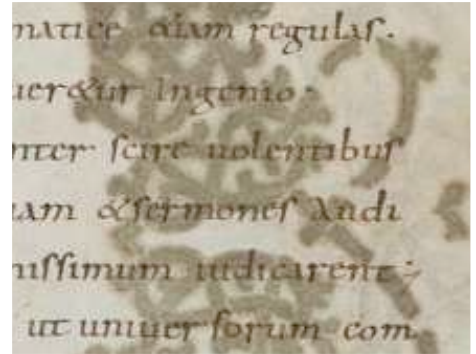 matice &iam regulas.
uer&ur Ingenio.
nter scire uolentibus
am &sermones Audi
nissimum iudicarent;
ut uniuersorum com